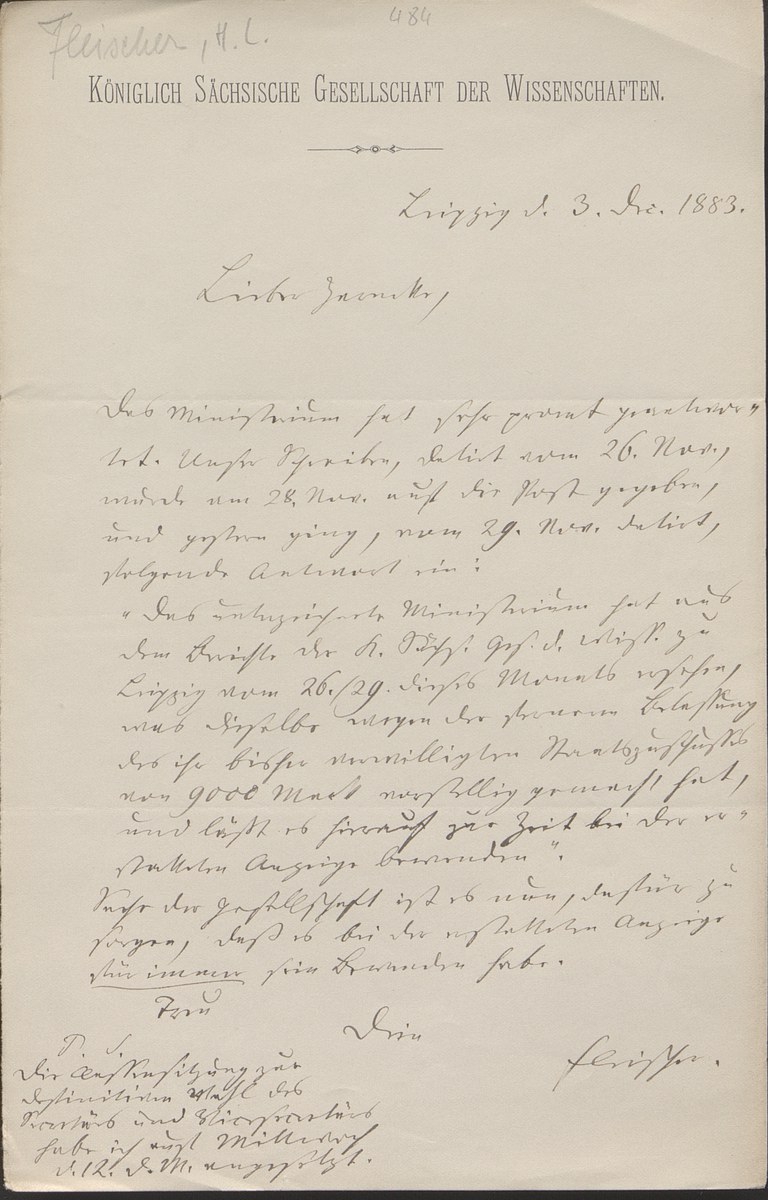 Fleischer, H. L.
484
KÖNIGLICH SÄCHSISCHE GESELLSCHAFT DER WISSENSCHAFTEN.
Leipzig d. 3. Dec. 1883.
Lieber Zarncke,
Das Ministerium hat sehr promt geantwor-
tet. Unser Schreiben, datirt vom 26. Nov.,
wurde am 28. Nov. auf die Post gegeben,
und gestern ging, vom 29. Nov. datirt,
folgende Antwort ein:
"Das unterzeichnete Ministerium hat aus
dem Berichte der K. Sächs. Ges. d. Wiss. zu
Leipzig vom 26./29. dieses Monats ersehen,
was dieselbe wegen der ferneren Belassung
des ihr bisher verwilligten Staatszuschusses
von 9000 Mark vorstellig gemacht hat,
und läßt es hierauf zur Zeit bei der er-
statteten Anzeige bewenden".
Sache der Gesellschaft ist es nun, dafür zu
sorgen, daß es bei der erstatteten Anzeige
für immer sein Bewenden habe.
Treu
Dein
Fleischer.
P. S.
Die Classensitzung zur
definitiven Wahl des
Secretärs und Vicesecretärs
habe ich auf Mittwoch
d. 12. d. M. angesetzt.